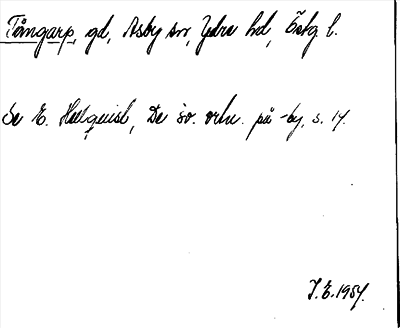 Tångarp, gd, Asby sn, Ydre hd, Östg l.
Se E. Hellquist, De sv. ortn. på -by, s. 17.
J.E. 1954.